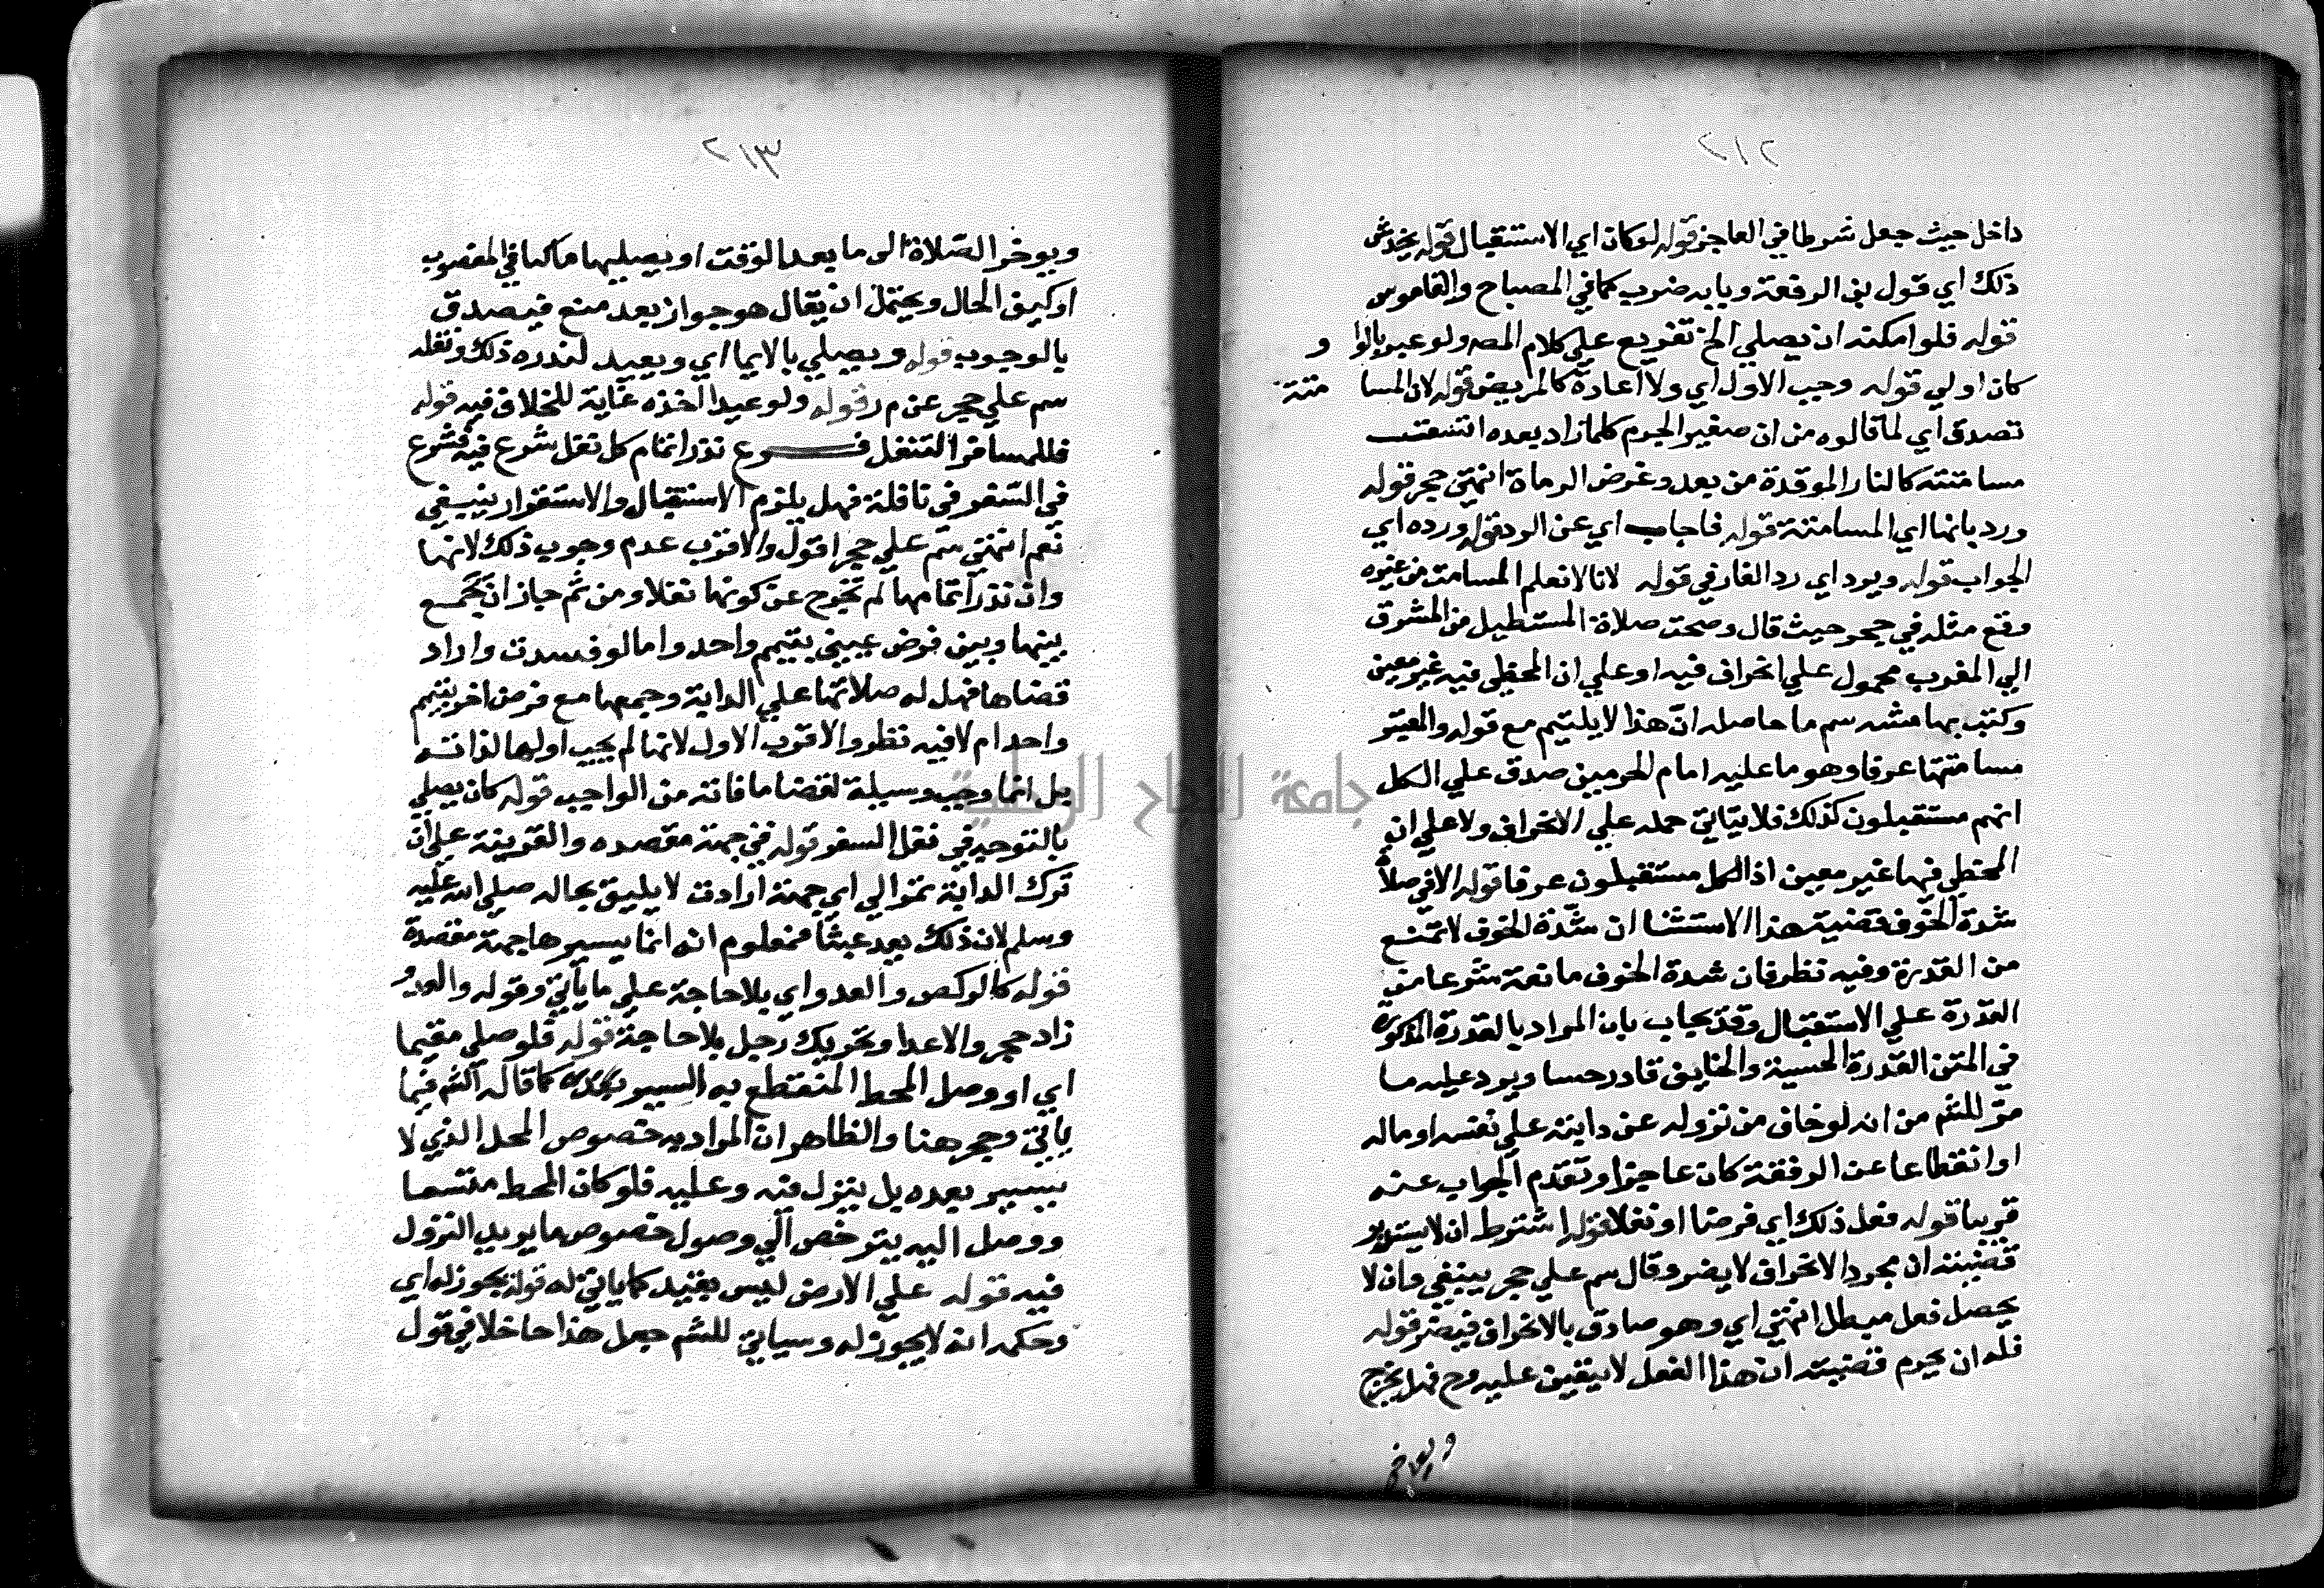 ٢١٢
داخل حيث جعل شرطا في العاجز قوله لوكان اي الاستقبال قوله يخدش
ذلك اي قول بني الرفعة وبابه ضرب كما في المصباح والقاموس
قوله فلوامكنه ان يصلي الخ تفريع علي كلام المصه ولوعبر بالوا و
كان اولي قوله وجب الاول اي ولا اعادة كالمريض قوله لان المسا متته
تصدق اي لما قالوه من ان صغير الجرم كلما زاد بعده اتسعت
مسامتته كالنار الموقدة من بعد وغرض الرماة انتهي حجر قوله
ورد بانها اي المسامتة قوله فاجاب اي عن الرد قوله ورده اي
الجواب قوله ويرد اي رد الفارقي قوله لانا لا نعلم المسامت من غيره
وقع مثله في حجر حيث قال وصحت صلاة المستطيل من المشرق
الي المغرب محمول علي انحراف فيه او علي ان المخطي فيه غير معين
وكتب بهامشه سم ما حاصله ان هذا لا يلتيم مع قوله والمعتبر
مسامتتها عرفا وهو ما عليه امام الحرمين صدق علي الكل
انهم مستقبلون كذلك فلا يتاتي حمله علي الانحراف ولا علي ان
المخطي فيها غير معين اذ الكل مستقبلون عرفا قوله الا في صلاة
شدة الخوف قضية هذا الاستثنا ان شدة الخوف لا تمنع
من القدرة وفيه نظر فان شدة الخوف مانعة شرعا من
القدرة علي الاستقبال وقد يجاب بان المراد بالقدرة المذكورة
في المتن القدرة الحسية والخايف قادر حسا ويرد عليه ما
مر للشم من انه لو خاف من نزوله عن دابته علي نفسه او ماله
او انقطاعا عن الرفقة كان عاجزا وتقدم الجواب عنه
قريبا قوله فعل ذلك اي فرضا او نفلا قوله اشترط ان لا يستدبر
قضيته ان مجرد الانحراف لا يضر وقال سم علي حجر ينبغي وان لا
يحصل فعل مبطل انتهي اي وهو صادق بالانحراف فيضر قوله
فله ان يحرم قضيته ان هذا الفعل لا يتعين عليه وح فهل يخرج
ويوخر
٢١٣
ويوخر الصلاة الي ما بعد الوقت او يصليها ماكثا في المغصوب
او كيف الحال ويحتمل ان يقال هو جواز بعد منع فيصدق
بالوجوب قوله ويصلي بالايما اي ويعيد لندره ذلك ونقله
سم علي حجر عن م ر قوله ولو عيدا الخ ذه غاية للخلاف فيه قوله
فللمسافر التنفل فرع نذر اتمام كل نفل شرع فيه فشرع
في السفر في نافلة فهل يلزم الاستقبال والاستقرار ينبغي
نعم انتهي سم علي حجر اقول والاقرب عدم وجوب ذلك لانها
وان نذر اتمامها لم تخرج عن كونها نفلا ومن ثم جاز ان يجمع
بينها وبين فرض عيني بتيمم واحد واما لو فسدت واراد
قضاها فهل له صلاتها علي الدابة وجمعها مع فرض اخر بتيمم
واحد ام لا فيه نظر والاقرب الاول لانها لم يجب اولها لذاته
بل انما وجب وسيلة لقضا ما فاته من الواجب قوله كان يصلي
بالتوجه في نفل السفر قوله في جهة مقصده والقرينة علي ان
ترك الدابة تمر الي اي جهة ارادت لا يليق بحاله صلي الله عليه
وسلم لان ذلك يعد عبثا فمعلوم انه انما يسيرها جهة مقصدة
قوله كالركض والعدو اي بلا حاجة علي ما ياتي وقوله والعدو
زاد حجر والاعدا وتحريك رجل بلا حاجة قوله فلو صلي مقيما
اي او وصل المحط المنقطع به السير بعده كما قاله الشم فيما
ياتي وحجر هنا والظاهر ان المراد به خصوص المحل الذي لا
يسير بعده بل ينزل فيه وعليه فلو كان المحط متسعا
ووصل اليه يترخص الي وصول خصوص ما يريد النزول
فيه قوله علي الارض ليس بقيد كما ياتي له قوله يجوز له اي
وحكمه انه لا يجوز له وسياتي للشم جعل هذا داخلا في قول
جامعة النجاح الوطنية